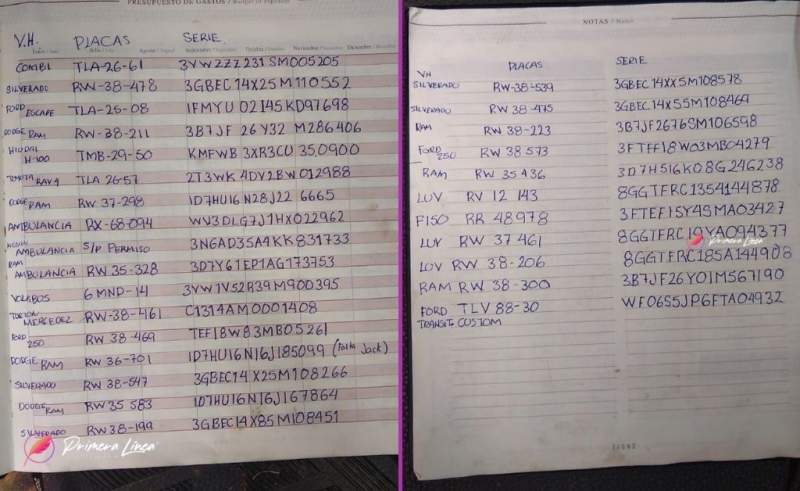 PRESUPUESTO DE GASTOS
V.H. PLACAS SERIE
COMBI TLA-26-61 3VWZZZ231SM005205
SILVERADO RW-38-478 3GBEC14X25M110552
FORD ESCAPE TLA-25-08 1FMYU02145KD97698
DODGE RAM RW-38-211 3B7JF26Y32M286406
H-100 TMB-29-50 KMFWB3XR3CU350900
TOYOTA RAV4 TLA 26-57 2T3WK4DV2BW012988
DODGE RAM RW 37-298 1D7HU16N28J226665
AMBULANCIA RX-68-094 WV3DLG7J1HX022962
AMBULANCIA S/P PERMISO 3N6AD35A4KK831733
RAM AMBULANCIA RW 35-328 3D7Y61EP1AG173753
VOLKBOS 6MND-14 3VW1V52R39M900395
MERCEDEZ RW-38-461 C1314AM0001408
FORD 250 RW 38-469 TEF18W83MB05261
DODGE RAM RW 36-701 1D7HU16N16J185099 (Falta Jack)
SILVERADO RW 38-547 3GBEC14X25M108266
DODGE RAM RW 35 583 1D7HU16N16J167864
SILVERADO RW 38-199 3GBEC14X85M108451
Primera Línea
NOTAS
VH PLACAS SERIE
SILVERADO RW-38-539 3GBEC14XX5M108578
SILVERADO RW 38-475 3GBEC14X55M108469
RAM RW 38-223 3B7JF2676SM106598
FORD 250 RW 38 573 3FTEF18W03MB04279
RAM RW 35436 3D7H516K08G246238
LUV RV 12 143 8GGTFRC1354144878
F150 RR 48978 3FTEF15Y4SMA03427
LUV RW 37 461 8GGTFRC19YA094377
LUV RW 38-206 8GGTFRC185A144908
RAM RW 38-300 3B7JF26Y01M567190
FORD TRANSIT CUSTOM TLV 88-30 WF06S5JP6FTA04932
Primera Línea